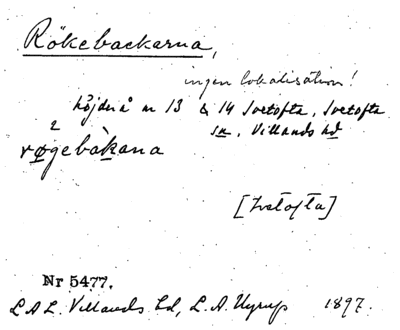 Rökebackarna,
ingen lokalisation!
höjder å nr 13 & 14 Ivetofta, Ivetofta
sn, Villands hd
2
røgebàkana
[Ivetofta]
Nr 5477.
L A L. Villands hd, L. A. Uyrup 1897.